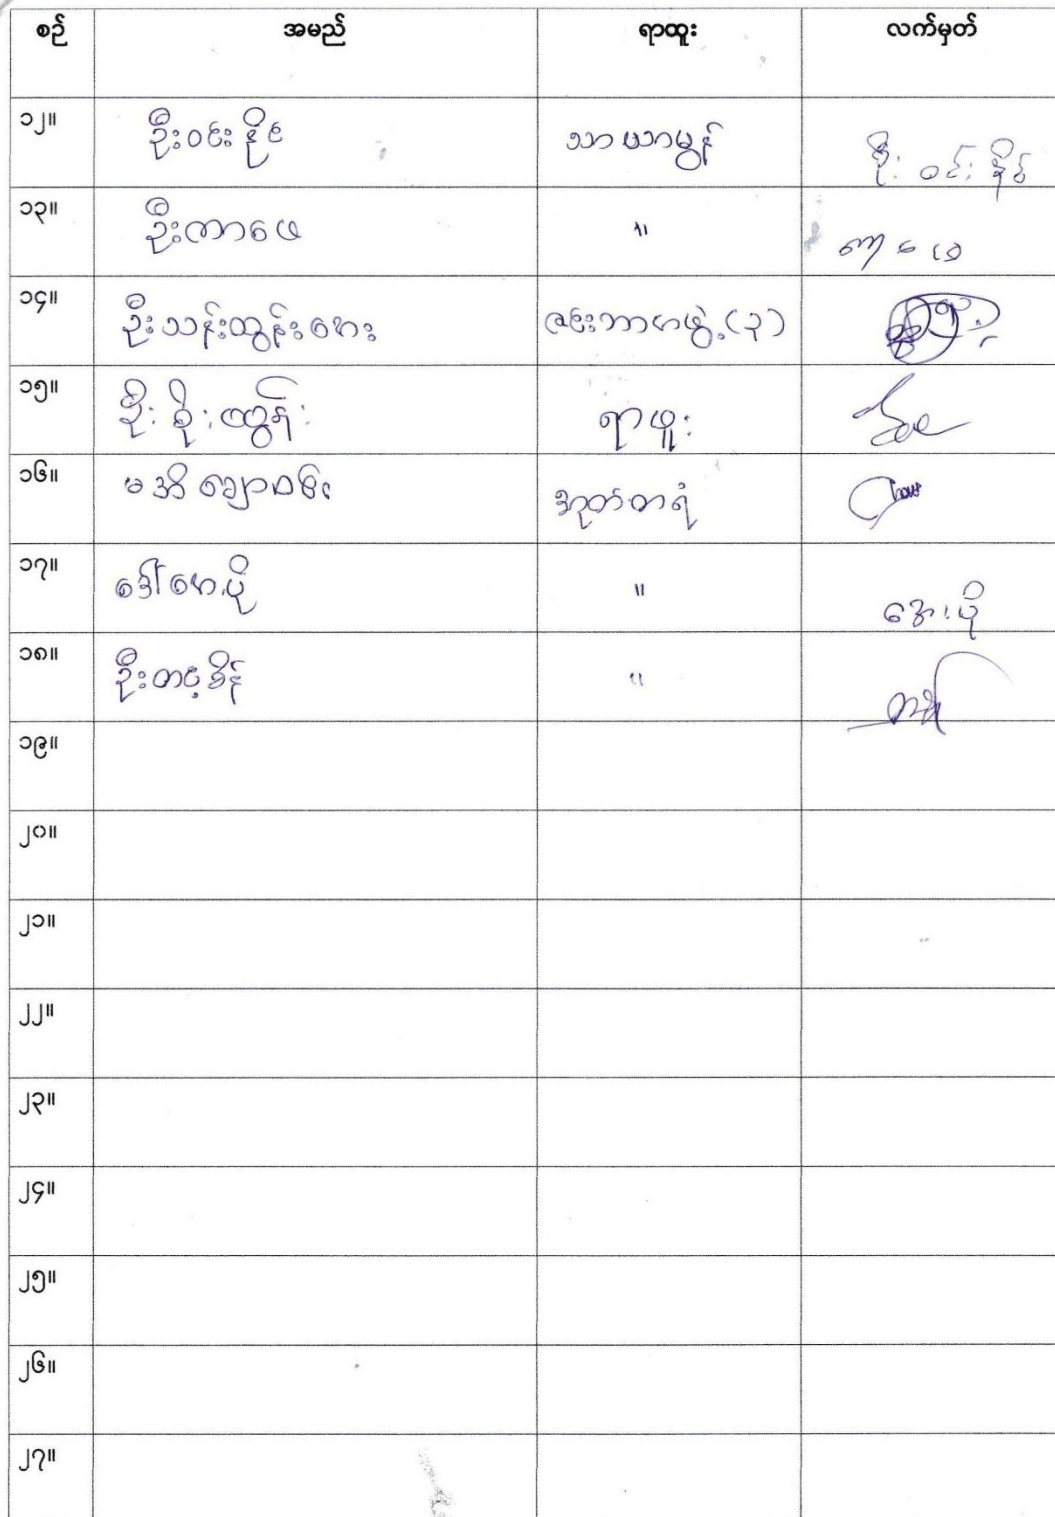 စဉ် အမည် ရာထူး လက်မှတ်
၁၂။ ဦးဝင်းနိုင် သာယာမွန် ဦးဝင်းနိုင်
၁၃။ ဦးကာဖေ " ကာဖေ
၁၄။ ဦးသန်းထွန်းအေး (၃)
၁၅။ ဦးစိုးထွန်း ရာထူး
၁၆။ မအိချောဝင်း အုတ်တရံ
၁၇။ ဒေါ်အေးပို " အေးပို
၁၈။ ဦးတင့်စိန် "
၁၉။
၂၀။
၂၁။
၂၂။
၂၃။
၂၄။
၂၅။
၂၆။
၂၇။